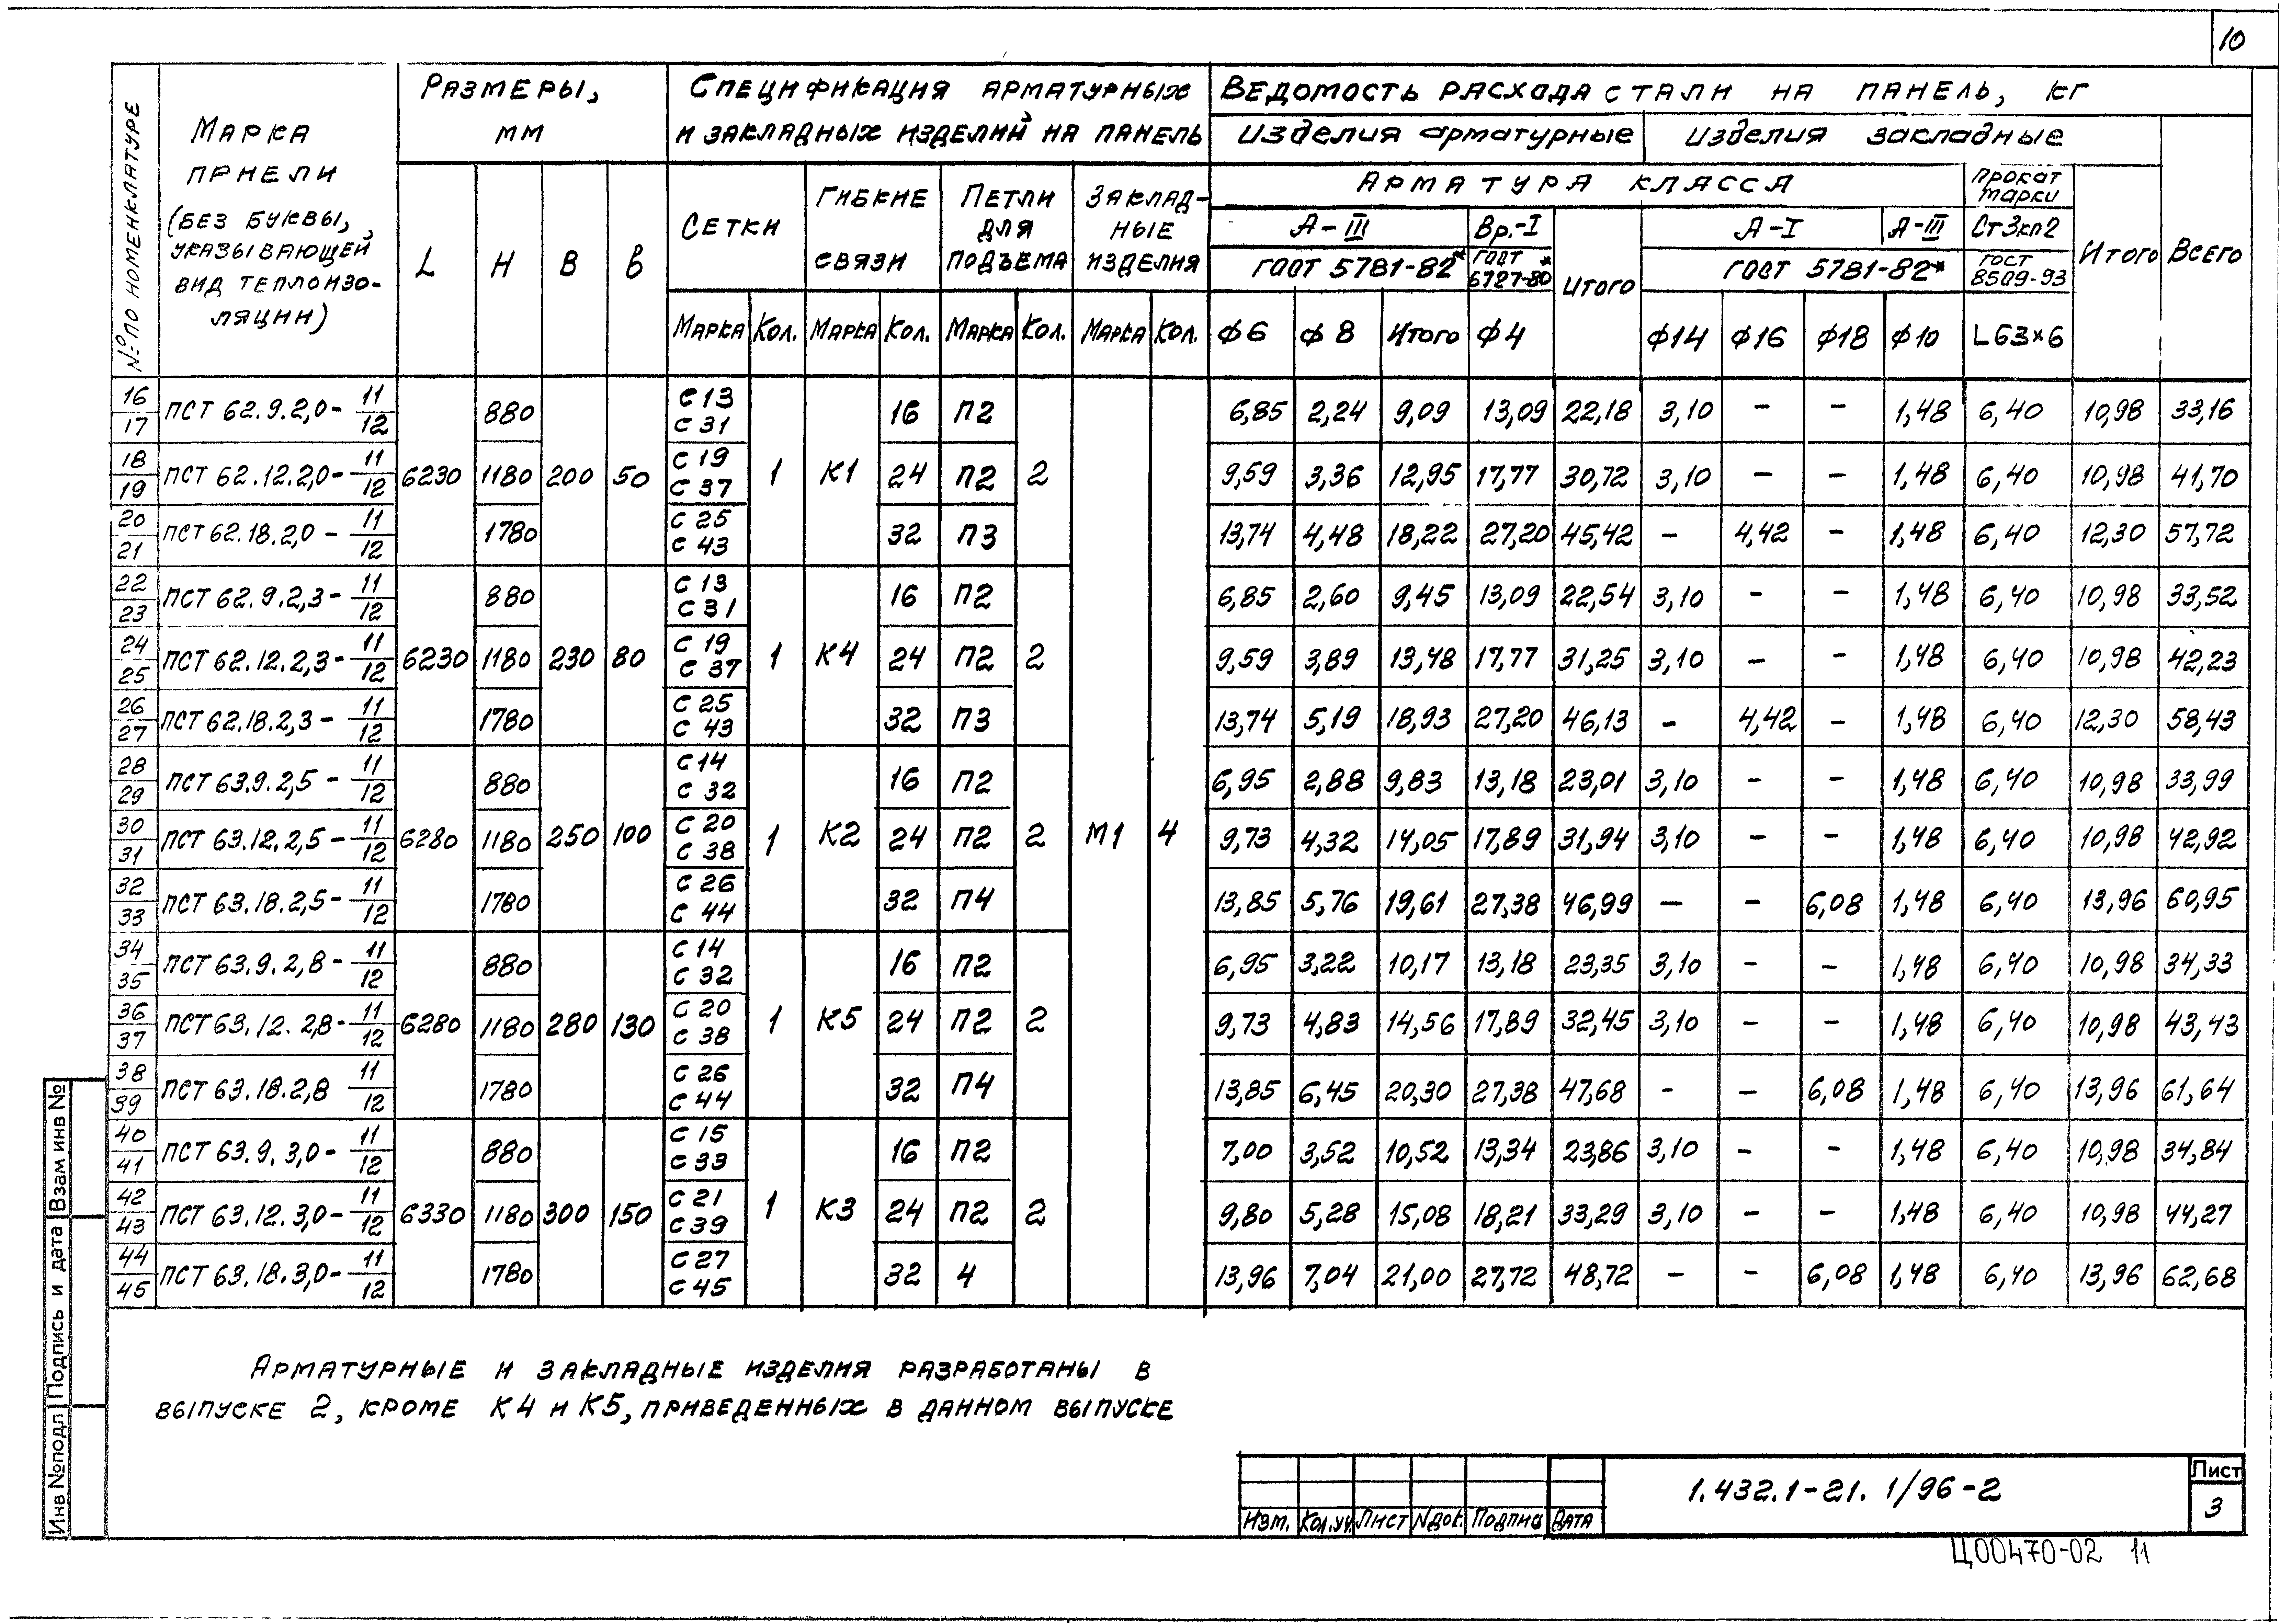 10
№ ПО НОМЕНКЛАТУРЕ
МАРКА
ПАНЕЛИ
(БЕЗ БУКВЫ,
УКАЗЫВАЮЩЕЙ
ВИД ТЕПЛОИЗО-
ЛЯЦИИ)
РАЗМЕРЫ,
ММ
L H B b
СПЕЦИФИКАЦИЯ АРМАТУРНЫХ
И ЗАКЛАДНЫХ ИЗДЕЛИЙ НА ПАНЕЛЬ
СЕТКИ
ГИБКИЕ
СВЯЗИ
ПЕТЛИ
ДЛЯ
ПОДЪЕМА
ЗАКЛАД-
НЫЕ
ИЗДЕЛИЯ
МАРКА КОЛ. МАРКА КОЛ. МАРКА КОЛ. МАРКА КОЛ.
ВЕДОМОСТЬ РАСХОДА СТАЛИ НА ПАНЕЛЬ, КГ
ИЗДЕЛИЯ АРМАТУРНЫЕ ИЗДЕЛИЯ ЗАКЛАДНЫЕ
АРМАТУРА КЛАССА
ПРОКАТ
МАРКИ
А-III Вр.-I А-I А-III Ст3кп2
ГОСТ 5781-82* ГОСТ 6727-80* ГОСТ 5781-82* ГОСТ 8509-93
Итого Итого Всего
ф6 ф8 Итого ф4 ф14 ф16 ф18 ф10 L63×6
16/17 ПСТ 62.9.2,0-11/12 880 С13 С31 16 П2 6,85 2,24 9,09 13,09 22,18 3,10 – – 1,48 6,40 10,98 33,16
18/19 ПСТ 62.12.2,0-11/12 6230 1180 200 50 С19 С37 1 К1 24 П2 2 9,59 3,36 12,95 17,77 30,72 3,10 – – 1,48 6,40 10,98 41,70
20/21 ПСТ 62.18.2,0-11/12 1780 С25 С43 32 П3 13,74 4,48 18,22 27,20 45,42 – 4,42 – 1,48 6,40 12,30 57,72
22/23 ПСТ 62.9.2,3-11/12 880 С13 С31 16 П2 6,85 2,60 9,45 13,09 22,54 3,10 – – 1,48 6,40 10,98 33,52
24/25 ПСТ 62.12.2,3-11/12 6230 1180 230 80 С19 С37 1 К4 24 П2 2 9,59 3,89 13,48 17,77 31,25 3,10 – – 1,48 6,40 10,98 42,23
26/27 ПСТ 62.18.2,3-11/12 1780 С25 С43 32 П3 13,74 5,19 18,93 27,20 46,13 – 4,42 – 1,48 6,40 12,30 58,43
28/29 ПСТ 63.9.2,5-11/12 880 С14 С32 16 П2 6,95 2,88 9,83 13,18 23,01 3,10 – – 1,48 6,40 10,98 33,99
30/31 ПСТ 63.12.2,5-11/12 6280 1180 250 100 С20 С38 1 К2 24 П2 2 М1 4 9,73 4,32 14,05 17,89 31,94 3,10 – – 1,48 6,40 10,98 42,92
32/33 ПСТ 63.18.2,5-11/12 1780 С26 С44 32 П4 13,85 5,76 19,61 27,38 46,99 – – 6,08 1,48 6,40 13,96 60,95
34/35 ПСТ 63.9.2,8-11/12 880 С14 С32 16 П2 6,95 3,22 10,17 13,18 23,35 3,10 – – 1,48 6,40 10,98 34,33
36/37 ПСТ 63.12.2,8-11/12 6280 1180 280 130 С20 С38 1 К5 24 П2 2 9,73 4,83 14,56 17,89 32,45 3,10 – – 1,48 6,40 10,98 43,43
38/39 ПСТ 63.18.2,8 11/12 1780 С26 С44 32 П4 13,85 6,45 20,30 27,38 47,68 – – 6,08 1,48 6,40 13,96 61,64
40/41 ПСТ 63.9.3,0-11/12 880 С15 С33 16 П2 7,00 3,52 10,52 13,34 23,86 3,10 – – 1,48 6,40 10,98 34,84
42/43 ПСТ 63.12.3,0-11/12 6330 1180 300 150 С21 С39 1 К3 24 П2 2 9,80 5,28 15,08 18,21 33,29 3,10 – – 1,48 6,40 10,98 44,27
44/45 ПСТ 63.18.3,0-11/12 1780 С27 С45 32 4 13,96 7,04 21,00 27,72 48,72 – – 6,08 1,48 6,40 13,96 62,68
АРМАТУРНЫЕ И ЗАКЛАДНЫЕ ИЗДЕЛИЯ РАЗРАБОТАНЫ В
ВЫПУСКЕ 2, КРОМЕ К4 И К5, ПРИВЕДЕННЫХ В ДАННОМ ВЫПУСКЕ
Инв №подл Подпись и дата Взам инв №
ИЗМ. КОЛ.УЧ. ЛИСТ №ДОК. ПОДПИСЬ ДАТА
1.432.1-21. 1/96-2
Лист
3
Ц00470-02 11